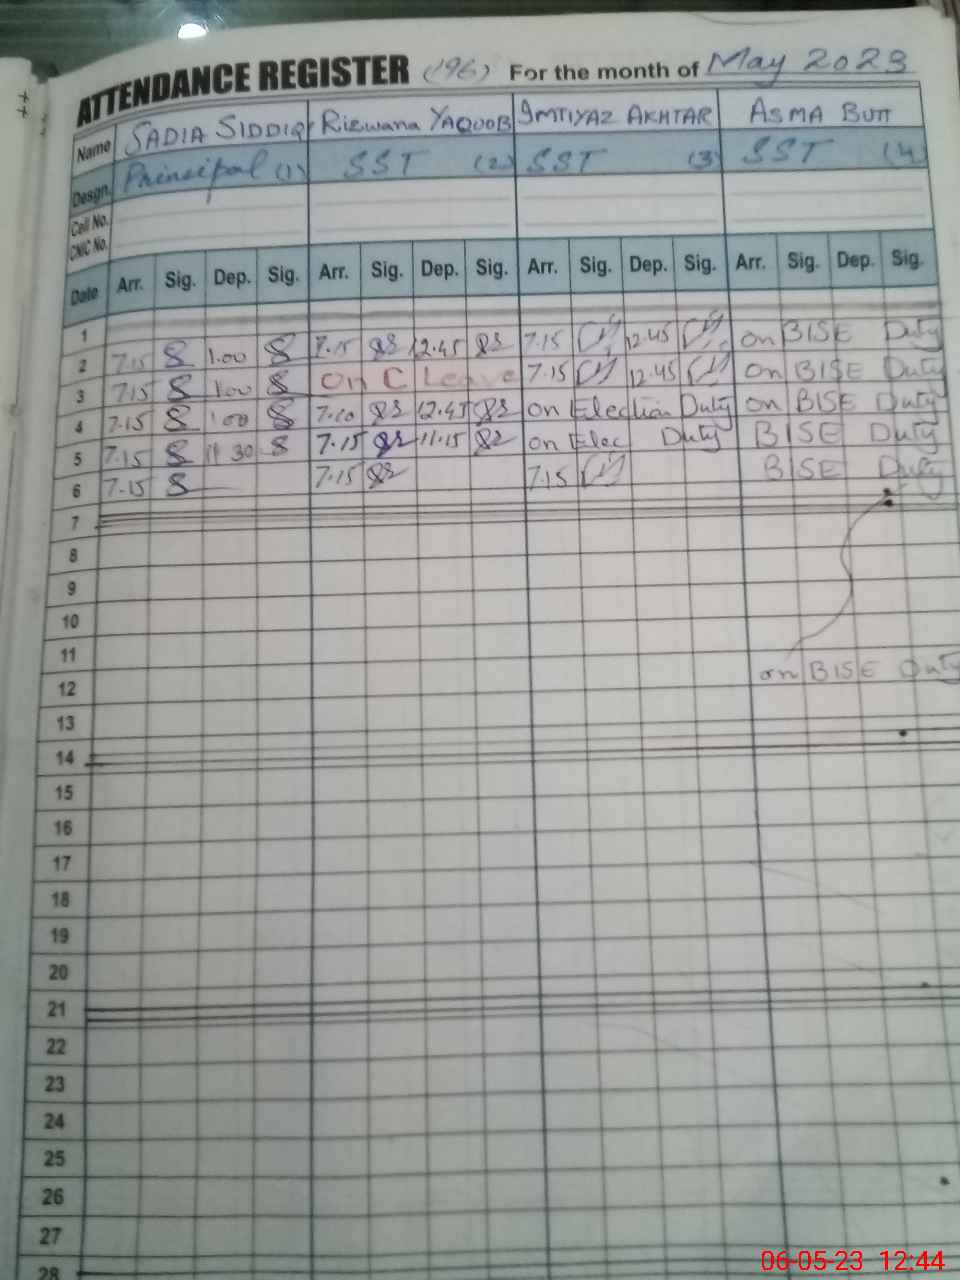 ATTENDANCE REGISTER (196) For the month of May 2023
Name SADIA SIDDIQ Rizwana YAQOOB IMTIYAZ AKHTAR ASMA BUTT
Desgn. Principal (1) SST (2) SST (3) SST (4)
Cell No.
CNIC No.
Date Arr. Sig. Dep. Sig. Arr. Sig. Dep. Sig. Arr. Sig. Dep. Sig. Arr. Sig. Dep. Sig.
1
2 7.15 1.00 7.15 12.45 7.15 12.45 on BISE Duty
3 7.15 1.00 On C Leave 7.15 12.45 on BISE Duty
4 7.15 1.00 7.10 12.45 on Election Duty on BISE Duty
5 7.15 11 30 7.15 11.15 on Elec Duty BISE Duty
6 7.15 7.15 7.15 BISE Duty
7
8
9
10
11
on BISE Duty
12
13
14
15
16
17
18
19
20
21
22
23
24
25
26
27
28
06-05-23 12:44